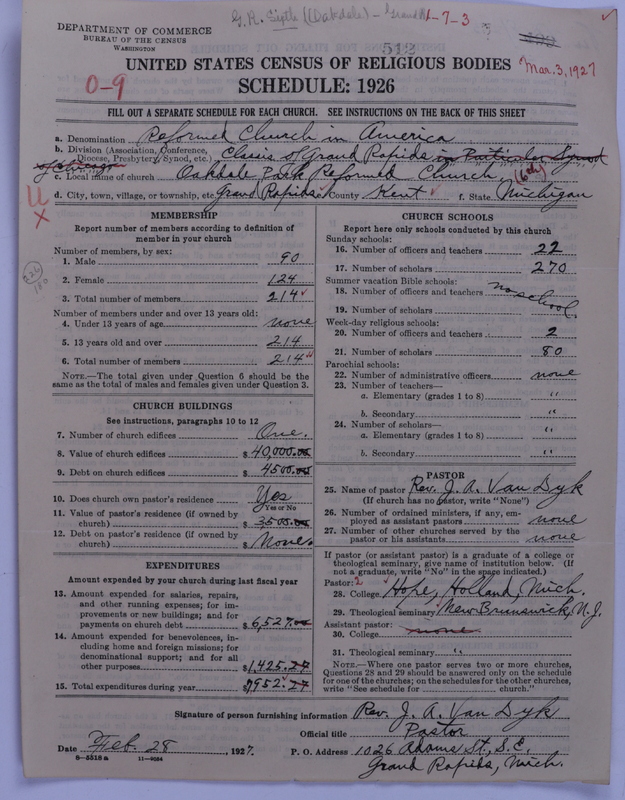 G. R. Sixth (Oakdale) - Grand R 1-7-3
DEPARTMENT OF COMMERCE
BUREAU OF THE CENSUS
WASHINGTON
512
UNITED STATES CENSUS OF RELIGIOUS BODIES
Mar. 3, 1927
SCHEDULE: 1926
0-9
FILL OUT A SEPARATE SCHEDULE FOR EACH CHURCH. SEE INSTRUCTIONS ON THE BACK OF THIS SHEET
a. Denomination Reformed Church in America
b. Division (Association, Conference, Diocese, Presbytery, Synod, etc.) Classis of Grand Rapids in Particular Synod
of Chicago
c. Local name of church Oakdale Park Reformed Church (6th)
d. City, town, village, or township, etc. Grand Rapids e. County Kent f. State Michigan
MEMBERSHIP
Report number of members according to definition of
member in your church
Number of members, by sex:
1. Male 90
2. Female 124
3. Total number of members 214
Number of members under and over 13 years old:
4. Under 13 years of age none
5. 13 years old and over 214
6. Total number of members 214
NOTE.—The total given under Question 6 should be the
same as the total of males and females given under Question 3.
CHURCH BUILDINGS
See instructions, paragraphs 10 to 12
7. Number of church edifices One.
8. Value of church edifices $ 40,000.00
9. Debt on church edifices $ 4500.00
10. Does church own pastor's residence Yes
Yes or No
11. Value of pastor's residence (if owned by
church) $ 3,500.00
12. Debt on pastor's residence (if owned by
church) $ None.
EXPENDITURES
Amount expended by your church during last fiscal year
13. Amount expended for salaries, repairs,
and other running expenses; for im-
provements or new buildings; and for
payments on church debt $ 6,527.00
14. Amount expended for benevolences, in-
cluding home and foreign missions; for
denominational support; and for all
other purposes $ 1,425.27
15. Total expenditures during year $ 7952.27
CHURCH SCHOOLS
Report here only schools conducted by this church
Sunday schools:
16. Number of officers and teachers 22
17. Number of scholars 270
Summer vacation Bible schools:
18. Number of officers and teachers no school.
19. Number of scholars
Week-day religious schools:
20. Number of officers and teachers 2
21. Number of scholars 80
Parochial schools:
22. Number of administrative officers none
23. Number of teachers—
a. Elementary (grades 1 to 8) "
b. Secondary "
24. Number of scholars—
a. Elementary (grades 1 to 8) "
b. Secondary "
PASTOR
25. Name of pastor Rev. J. A. Van Dyk
(If church has no pastor, write "None")
26. Number of ordained ministers, if any, em-
ployed as assistant pastors none
27. Number of other churches served by the
pastor or his assistants none
If pastor (or assistant pastor) is a graduate of a college or
theological seminary, give name of institution below. (If
not a graduate, write "No" in the space indicated.)
Pastor: 2
28. College Hope, Holland, Mich.
29. Theological seminary New Brunswick, N.J.
Assistant pastor:
30. College none
31. Theological seminary "
NOTE.—Where one pastor serves two or more churches,
Questions 28 and 29 should be answered only on the schedule
for one of the churches; on the schedules for the other churches,
write "See schedule for church."
Signature of person furnishing information Rev. J. A. Van Dyk
Official title Pastor
Date Feb. 28, 1927. P. O. Address 1026 Adams St., S.E.
8-5518a 11-9584
Grand Rapids, Mich.